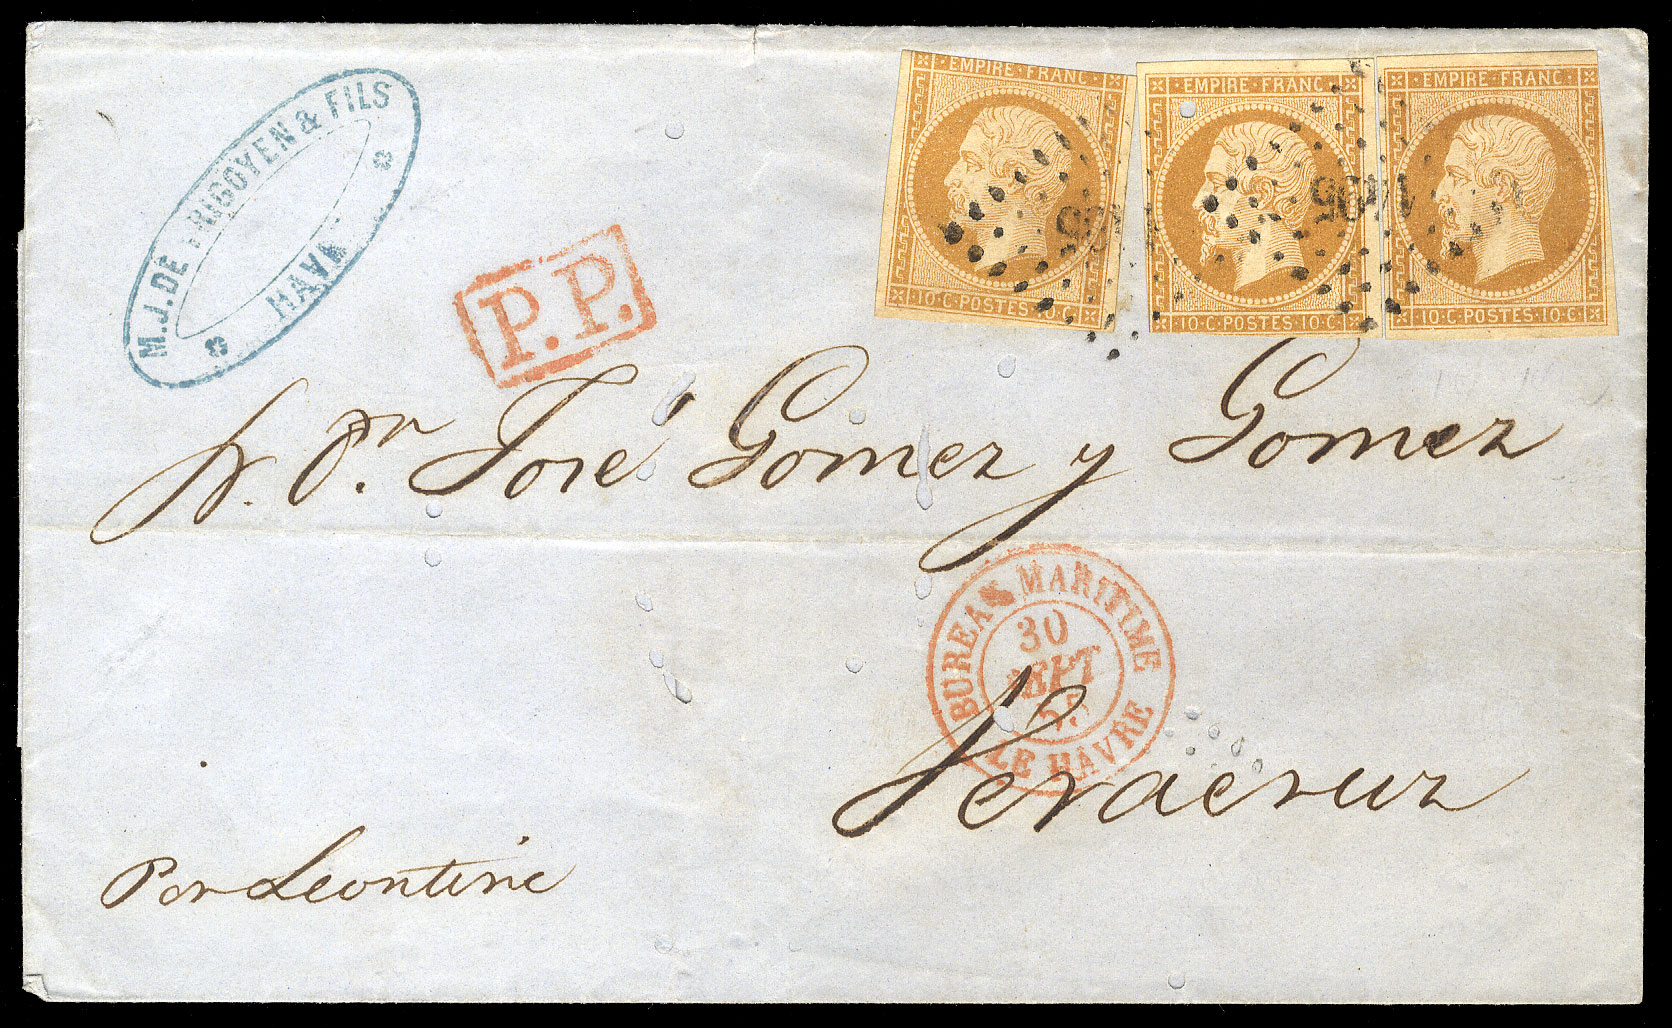 M.J. DE YRIGOYEN & FILS
HAVRE
P.P.
EMPIRE · FRANC ·
10 · C · POSTES · 10 · C ·
EMPIRE · FRANC ·
10 · C · POSTES · 10 · C ·
EMPIRE · FRANC ·
10 · C · POSTES · 10 · C ·
1495
José Gomez y Gomez
BUREAU MARITIME
30
SEPT
55
LE HAVRE
Veracruz
Por Leontine